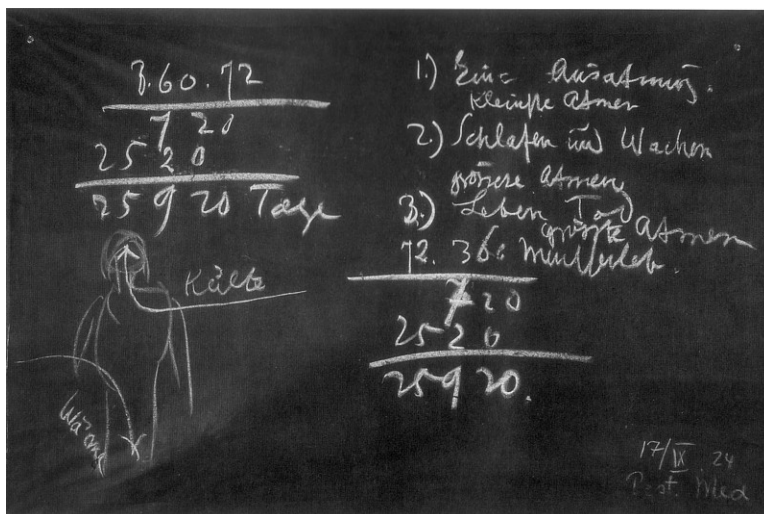 3.60.72
720
2520
25920 Tage
Kälte
Wärme
1.) Ein= Ausatmung.
kleinste Atmen
2.) Schlafen und Wachen
grössere Atmen
3.) Leben Tod
grösste Atmen
72. 360
720
2520
25920.
17/IX. 24
Past. Med